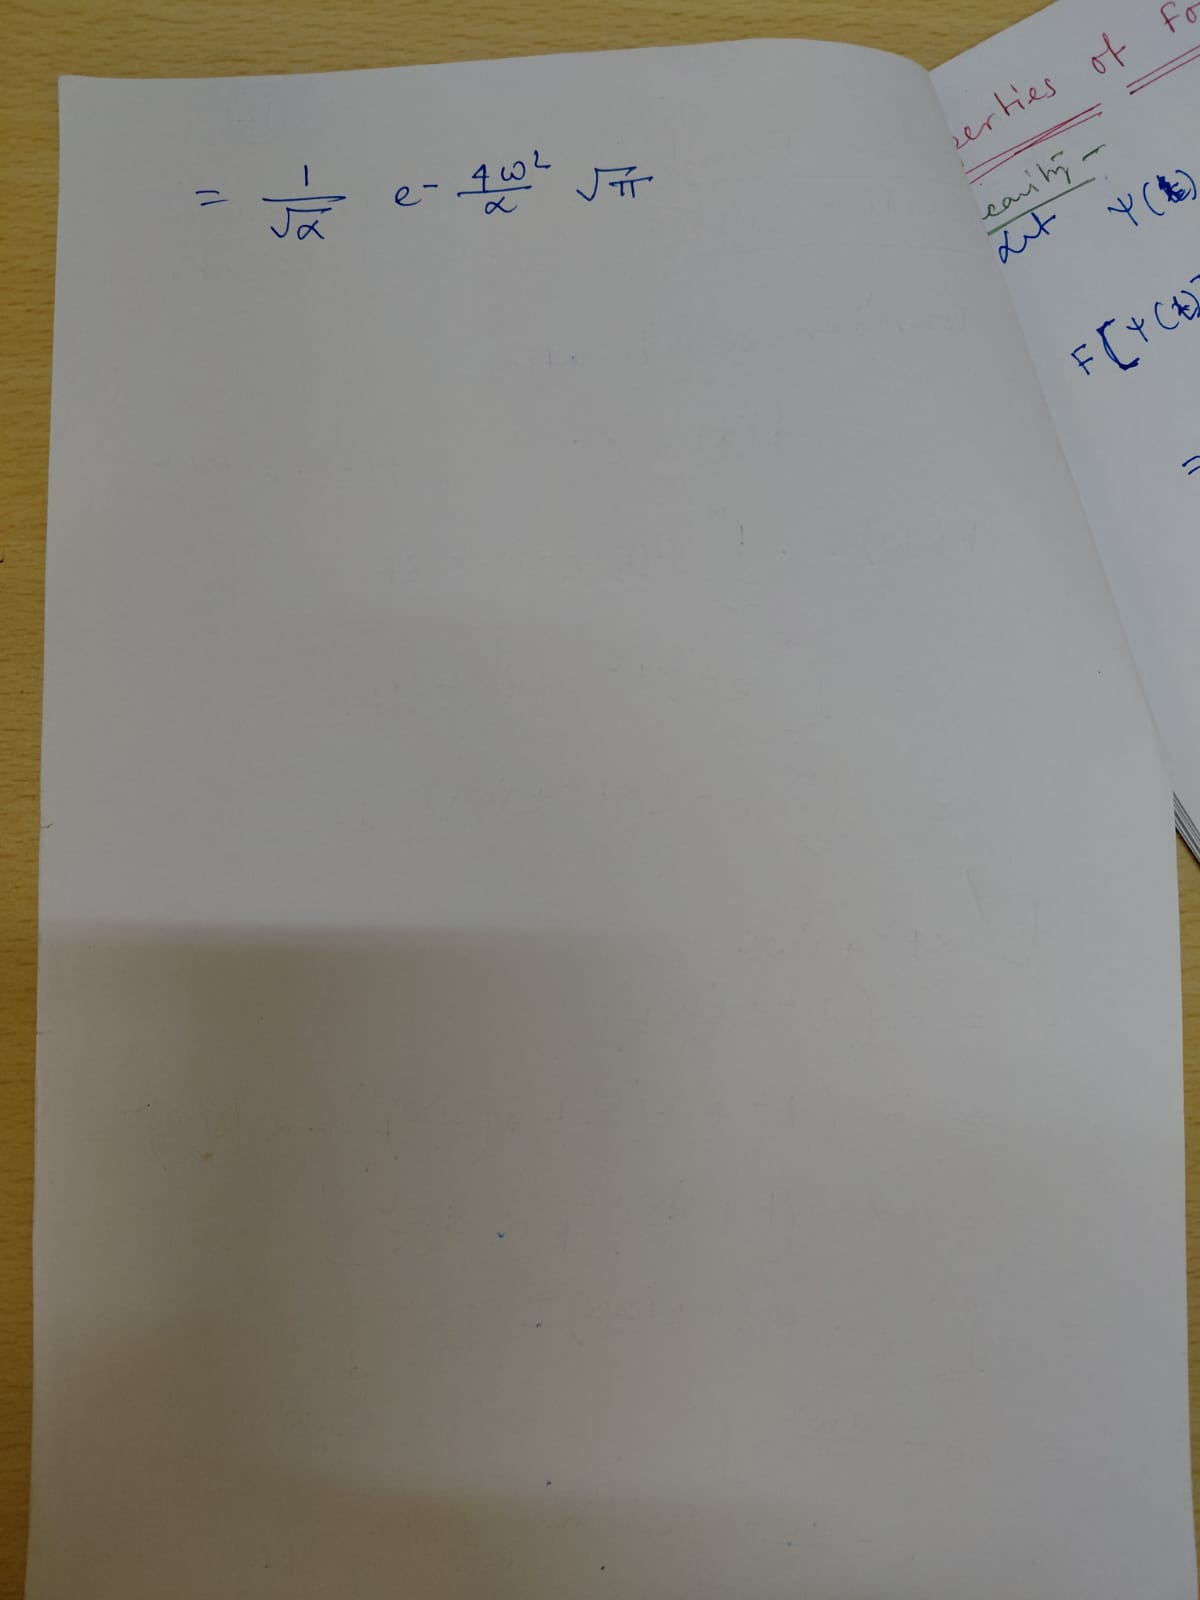 = 1/√α e- 4ω²/α √π
perties of Fo
earity -
Let Ψ(t)
F[Ψ(t)
=